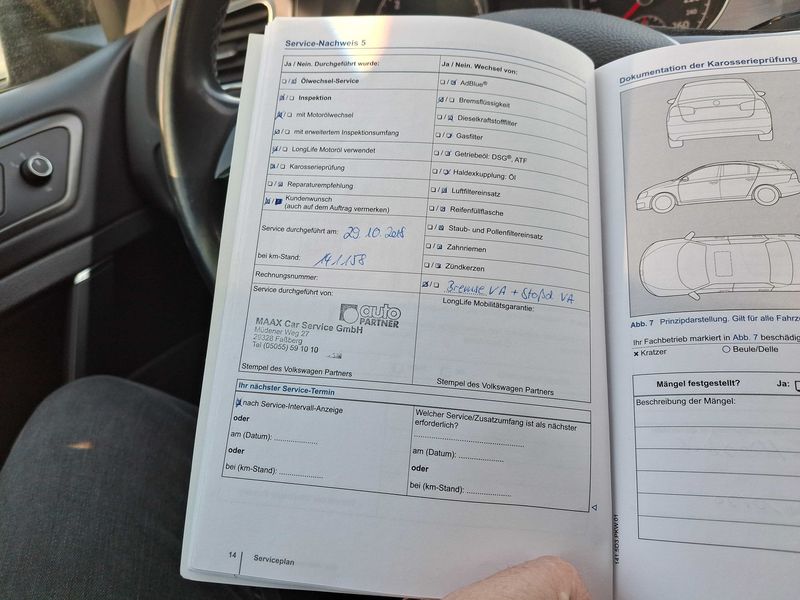 Service-Nachweis 5
Ja / Nein. Durchgeführt wurde:
Ölwechsel-Service
Inspektion
mit Motorölwechsel
mit erweitertem Inspektionsumfang
LongLife Motoröl verwendet
Karosserieprüfung
Reparaturempfehlung
Kundenwunsch
(auch auf dem Auftrag vermerken)
Service durchgeführt am: 29.10.2018
bei km-Stand: 141.158
Rechnungsnummer:
Service durchgeführt von:
auto
PARTNER
MAAX Car Service GmbH
Müdener Weg 27
29328 Faßberg
Tel (05055) 59 10 10
Stempel des Volkswagen Partners
Ja / Nein. Wechsel von:
AdBlue®
Bremsflüssigkeit
Dieselkraftstofffilter
Gasfilter
Getriebeöl: DSG®, ATF
Haldexkupplung: Öl
Luftfiltereinsatz
Reifenfüllflasche
Staub- und Pollenfiltereinsatz
Zahnriemen
Zündkerzen
Bremse VA + Stoßd VA
LongLife Mobilitätsgarantie:
Stempel des Volkswagen Partners
Ihr nächster Service-Termin
nach Service-Intervall-Anzeige
oder
am (Datum): ....................
oder
bei (km-Stand): ....................
Welcher Service/Zusatzumfang ist als nächster
erforderlich?
am (Datum): ....................
oder
bei (km-Stand): ....................
14
Serviceplan
Dokumentation der Karosserieprüfung
Abb. 7 Prinzipdarstellung. Gilt für alle
Ihr Fachbetrieb markiert in Abb. 7
x Kratzer
Beule/Delle
Mängel festgestellt? Ja:
Beschreibung der Mängel:
260